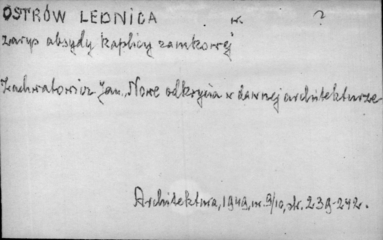 OSTRÓW LEDNICA w. ?
zarys absydy kaplicy zamkowej
Zachwatowicz Jan, Nowe odkrycia w dawnej architekturze
Architektura, 1948, nr. 9/10, str. 239-242.